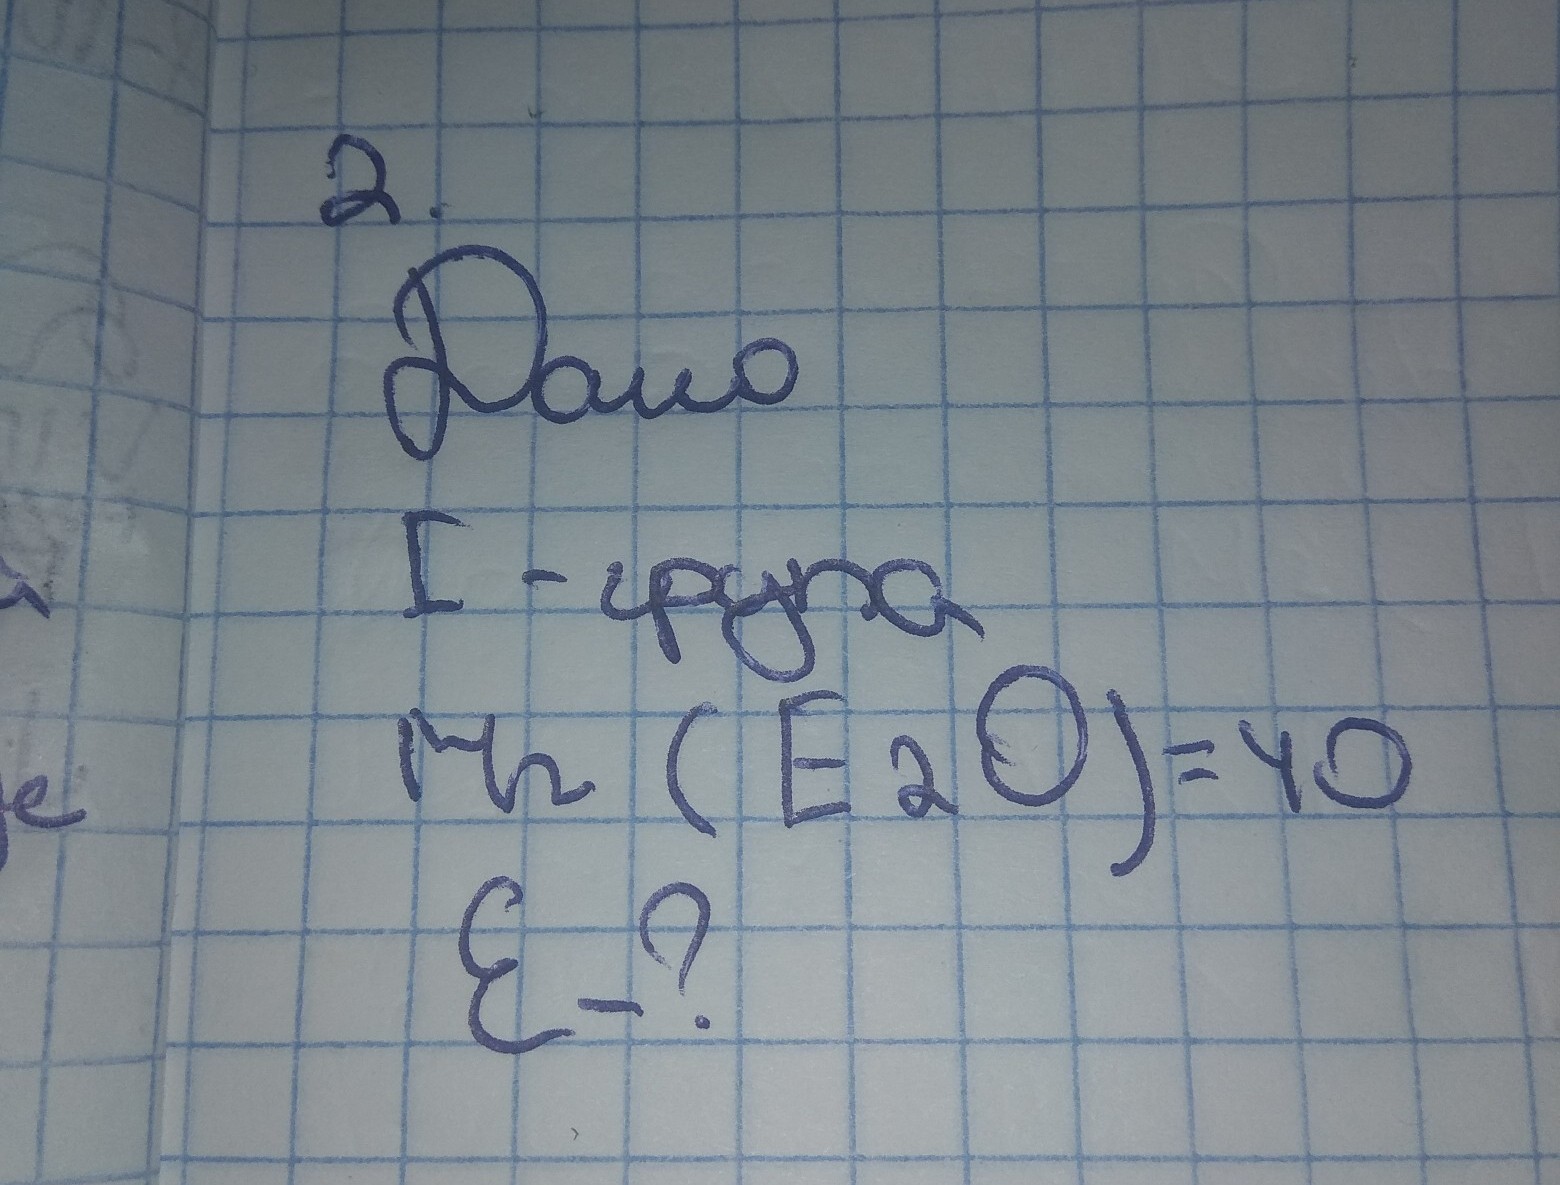 2.
Дано
I - група
Mr (E2O) = 40
E - ?